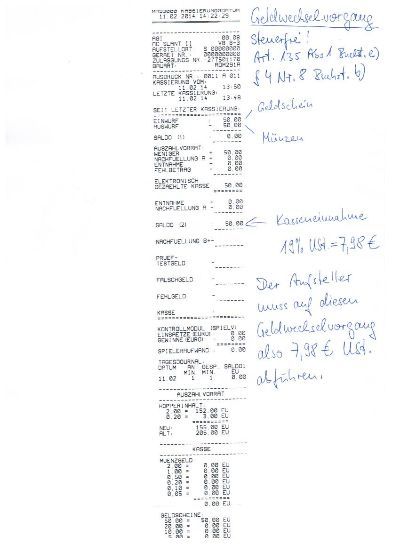 11.02.2014 14:22:29
Geldwechselvorgang
steuerfrei!
Art. 135 Abs 1 Buchst. e)
§ 4 Nr. 8 Buchst. b)
KASSIERUNG VOM:
11.02.14 13:50
LETZTE KASSIERUNG:
11.02.14 13:49
SEIT LETZTER KASSIERUNG:
Geldschein
EINWURF 50.00
AUSWURF 50.00
Münzen
SALDO (1) 0.00
AUSZAHLVORRAT
WENIGER + 50.00
NACHFUELLUNG A - 0.00
ENTNAHME + 0.00
FEHLBETRAG + 0.00
ELEKTRONISCH
GEZAEHLTE KASSE 50.00
ENTNAHME + 0.00
NACHFUELLUNG A - 0.00
SALDO (2) 50.00
Kasseneinnahme
19% USt = 7,98 €
NACHFUELLUNG B+
PRUEF-
TESTGELD
FALSCHGELD
FEHLGELD
Der Aufsteller
muss auf diesen
Geldwechselvorgang
also 7,98 € USt.
abführen.
KASSE
KONTROLLMODUL (SPIELV)
EINSAETZE (EURO) 0.00
GEWINNE (EURO) 0.00
SPIELERAUFWAND 0.00
TAGESJOURNAL
DATUM AN GESP. SALDO1
MIN MIN EU
11.02 1 1 0.00
AUSZAHLVORRAT
HOPPERINHALT
2.00 = 152.00 EU
0.20 = 3.00 EU
NEU: 155.00 EU
ALT: 205.00 EU
KASSE
MUENZGELD
2.00 = 0.00 EU
1.00 = 0.00 EU
0.50 = 0.00 EU
0.20 = 0.00 EU
0.10 = 0.00 EU
0.05 = 0.00 EU
0.00 EU
GELDSCHEINE
50.00 = 50.00 EU
20.00 = 0.00 EU
10.00 = 0.00 EU